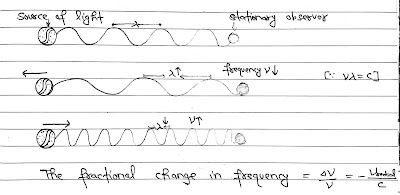 Source of light stationary observer
λ
λ↑ frequency ν↓ [∵ νλ = c]
λ↓ ν↑
The fractional change in frequency = Δν/ν = - Vradial/c